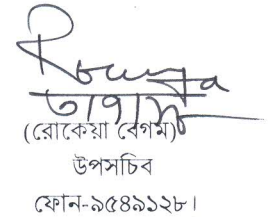 (রোকেয়া বেগম)
উপসচিব
ফোন-৯৫৪৯১২৮।